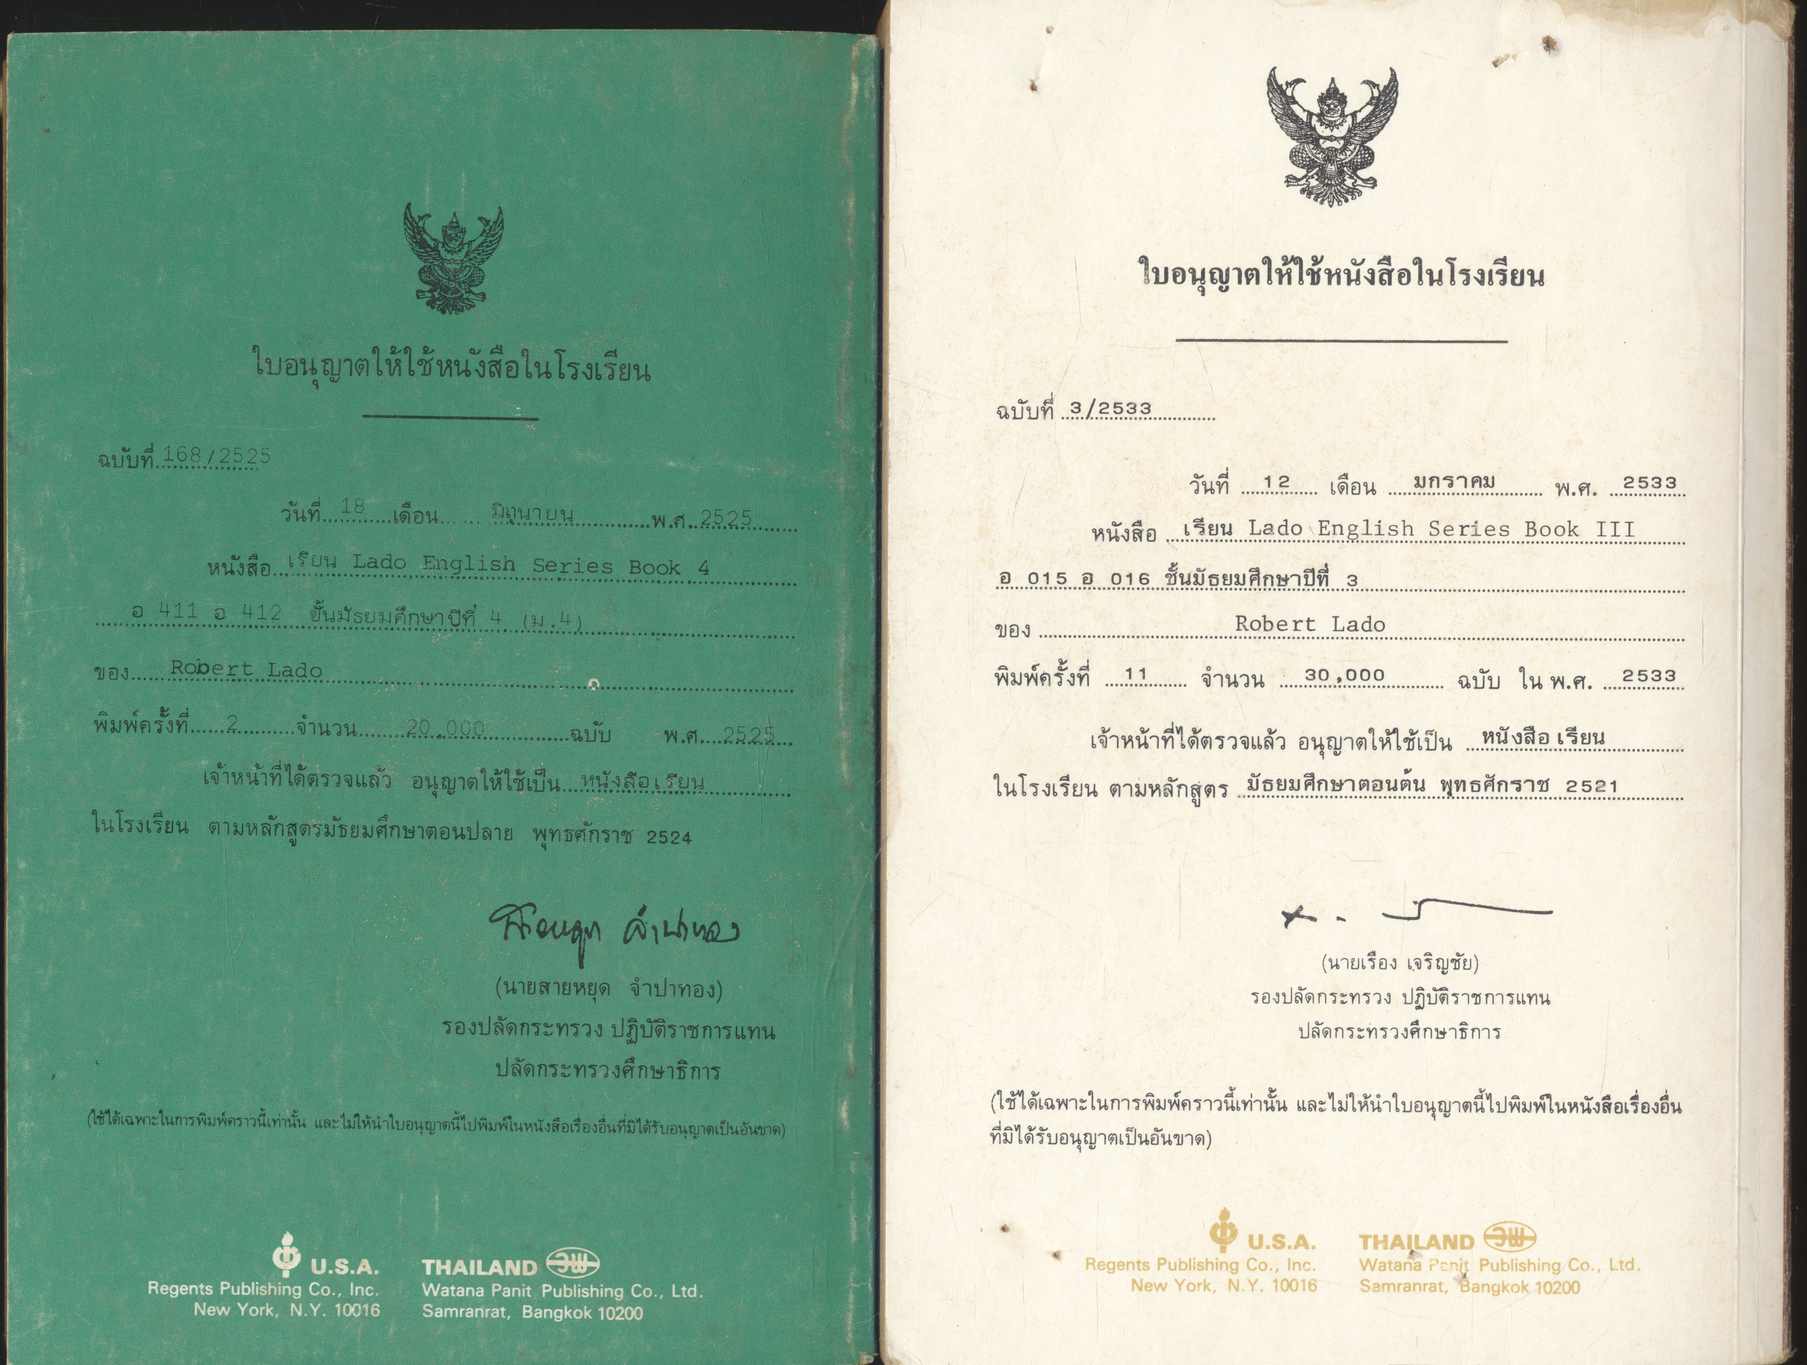 ใบอนุญาตให้ใช้หนังสือในโรงเรียน
ฉบับที่ 168/2525
วันที่ 18 เดือน มิถุนายน พ.ศ. 2525
หนังสือ เรียน Lado English Series Book 4
อ 411 อ 412 ชั้นมัธยมศึกษาปีที่ 4 (ม.4)
ของ Robert Lado
พิมพ์ครั้งที่ 2 จำนวน 20,000 ฉบับ พ.ศ. 2525
เจ้าหน้าที่ได้ตรวจแล้ว อนุญาตให้ใช้เป็น หนังสือเรียน
ในโรงเรียน ตามหลักสูตรมัธยมศึกษาตอนปลาย พุทธศักราช 2524
(นายสายหยุด จำปาทอง)
รองปลัดกระทรวง ปฏิบัติราชการแทน
ปลัดกระทรวงศึกษาธิการ
(ใช้ได้เฉพาะในการพิมพ์คราวนี้เท่านั้น และไม่ให้นำใบอนุญาตนี้ไปพิมพ์ในหนังสือเรื่องอื่นที่มิได้รับอนุญาตเป็นอันขาด)
U.S.A.
Regents Publishing Co., Inc.
New York, N.Y. 10016
THAILAND วพ
Watana Panit Publishing Co., Ltd.
Samranrat, Bangkok 10200
ใบอนุญาตให้ใช้หนังสือในโรงเรียน
ฉบับที่ 3/2533
วันที่ 12 เดือน มกราคม พ.ศ. 2533
หนังสือ เรียน Lado English Series Book III
อ 015 อ 016 ชั้นมัธยมศึกษาปีที่ 3
ของ Robert Lado
พิมพ์ครั้งที่ 11 จำนวน 30,000 ฉบับ ใน พ.ศ. 2533
เจ้าหน้าที่ได้ตรวจแล้ว อนุญาตให้ใช้เป็น หนังสือเรียน
ในโรงเรียน ตามหลักสูตร มัธยมศึกษาตอนต้น พุทธศักราช 2521
(นายเรือง เจริญชัย)
รองปลัดกระทรวง ปฏิบัติราชการแทน
ปลัดกระทรวงศึกษาธิการ
(ใช้ได้เฉพาะในการพิมพ์คราวนี้เท่านั้น และไม่ให้นำใบอนุญาตนี้ไปพิมพ์ในหนังสือเรื่องอื่น
ที่มิได้รับอนุญาตเป็นอันขาด)
U.S.A.
Regents Publishing Co., Inc.
New York, N.Y. 10016
THAILAND วพ
Watana Panit Publishing Co., Ltd.
Samranrat, Bangkok 10200